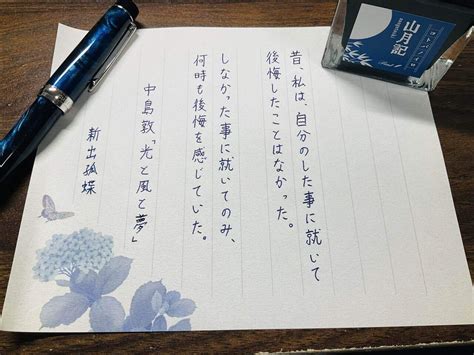 昔、私は、自分のした事に就いて
後悔したことはなかった。
しなかった事に就いてのみ、
何時も後悔を感じていた。
中島敦「光と風と夢」
新出孤蝶
山月記